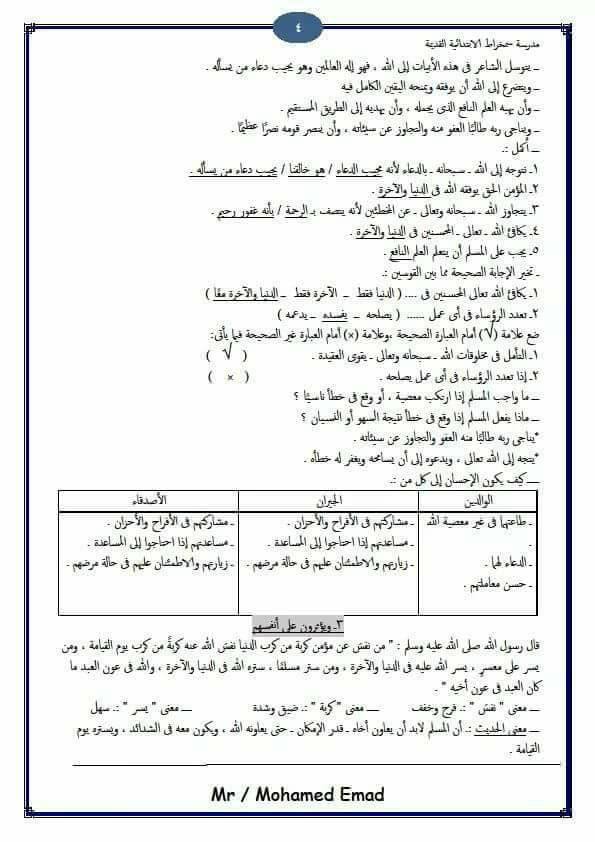 ٤
مدرسة سمخراط الابتدائية القديمة
ـ يتوسل الشاعر فى هذه الأبيات إلى الله ، فهو إله العالمين وهو يجيب دعاء من يسأله .
ـ ويتضرع إلى الله أن يوفقه ويمنحه اليقين الكامل فيه
ـ وأن يهبه العلم النافع الذى يجمله ، وأن يهديه إلى الطريق المستقيم .
ـ ويناجى ربه طالبًا العفو منه والتجاوز عن سيئاته ، وأن ينصر قومه نصرًا عظيمًا .
ـ أكمل :ـ
١ـ نتوجه إلى الله ـ سبحانه ـ بالدعاء لأنه مجيب الدعاء / هو خالقنا / يجيب دعاء من يسأله .
٢ـ المؤمن الحق يوفقه الله فى الدنيا والآخرة .
٣ـ يتجاوز الله ـ سبحانه وتعالى ـ عن المخطئين لأنه يتصف بـ الرحمة / بأنه غفور رحيم .
٤ـ يكافئ الله ـ تعالى ـ المحسنين فى الدنيا والآخرة .
٥ـ يجب على المسلم أن يتعلم العلم النافع .
ـ تخير الإجابة الصحيحة مما بين القوسين :ـ
١ـ يكافئ الله تعالى المحسنين فى .... ( الدنيا فقط ـ الآخرة فقط ـ الدنيا والآخرة معًا )
٢ـ تعدد الرؤساء فى أى عمل ...... ( يصلحه ـ يفسده ـ يدعمه )
ضع علامة (√) أمام العبارة الصحيحة ،وعلامة (×) أمام العبارة غير الصحيحة فيما يأتى:
١ـ التأمل فى مخلوقات الله ـ سبحانه وتعالى ـ يقوى العقيدة . ( √ )
٢ـ إذا تعدد الرؤساء فى أى عمل يصلحه . ( × )
ـ ما واجب المسلم إذا ارتكب معصية ، أو وقع فى خطأ ناسيًا ؟
ـ ماذا يفعل المسلم إذا وقع فى خطأ نتيجة السهو أو النسيان ؟
*يناجى ربه طالبًا منه العفو والتجاوز عن سيئاته .
*يتجه إلى الله تعالى ، ويدعوه إلى أن يسامحه ويغفر له خطأه .
ـ كيف يكون الإحسان إلى كل من :ـ
الوالدين الجيران الأصدقاء
ـ طاعتهما فى غير معصية الله ـ مشاركتهم فى الأفراح والأحزان . ـ مشاركتهم فى الأفراح والأحزان .
. ـ مساعدتهم إذا احتاجوا إلى المساعدة . ـ مساعدتهم إذا احتاجوا إلى المساعدة .
ـ الدعاء لهما . ـ زيارتهم والاطمئنان عليهم فى حالة مرضهم . ـ زيارتهم والاطمئنان عليهم فى حالة مرضهم .
ـ حسن معاملتهم .
٣ـ ويؤثرون على أنفسهم
قال رسول الله صلى الله عليه وسلم : " من نفسَ عن مؤمن كربة من كرب الدنيا نفسَ الله عنه كربةً من كرب يوم القيامة ، ومن
يسر على معسرٍ ، يسر الله عليه فى الدنيا والآخرة ، ومن ستر مسلمًا ، ستره الله فى الدنيا والآخرة ، والله فى عون العبد ما
كان العبد فى عون أخيه " .
ـ معنى " نفسَ " :ـ فرج وخفف ـ معنى "كربة " :ـ ضيق وشدة ـ معنى " يسر " :ـ سهل
ـ معنى الحديث :ـ أن المسلم لابد أن يعاون أخاه ـ قدر الإمكان ـ حتى يعاونه الله ، ويكون معه فى الشدائد ، ويستره يوم
القيامة .
Mr / Mohamed Emad